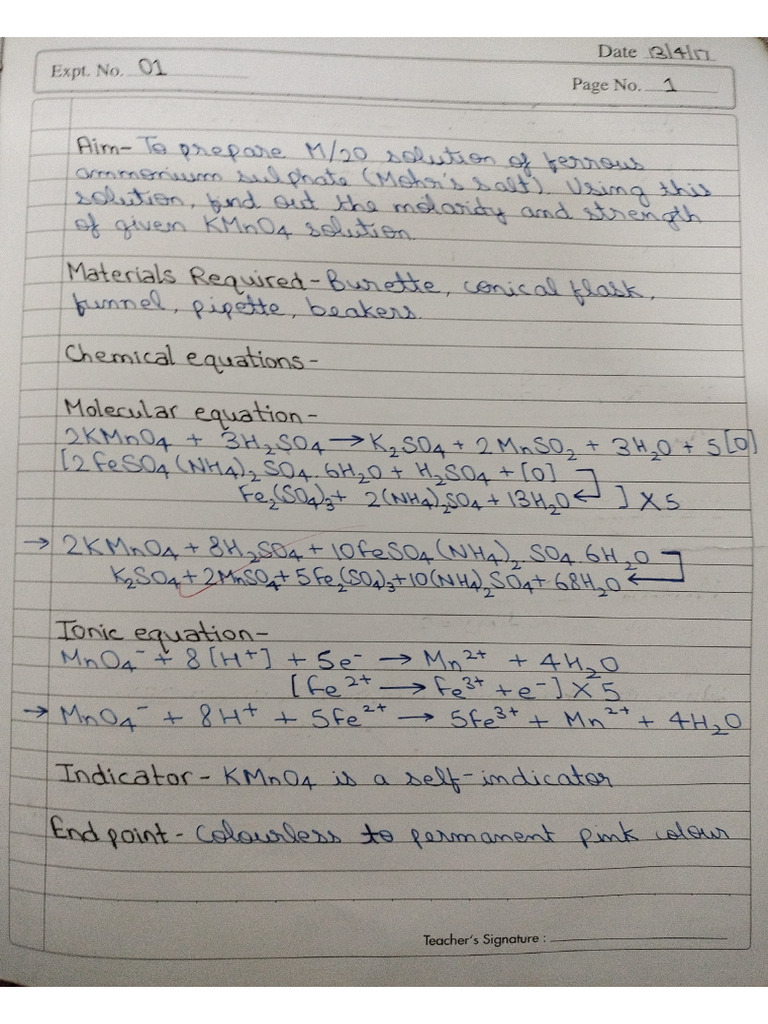 Date 13/4/17
Expt. No. 01
Page No. 1
Aim- To prepare M/20 solution of ferrous
ammonium sulphate (Mohr's salt). Using this
solution, find out the molarity and strength
of given KMnO4 solution.
Materials Required - Burette, conical flask,
funnel, pipette, beakers.
Chemical equations-
Molecular equation-
2KMnO4 + 3H2SO4 → K2SO4 + 2MnSO2 + 3H2O + 5[O]
[2FeSO4(NH4)2SO4.6H2O + H2SO4 + [O]
Fe2(SO4)3 + 2(NH4)2SO4 + 13H2O ] X 5
→ 2KMnO4 + 8H2SO4 + 10FeSO4(NH4)2.SO4.6H2O
K2SO4 + 2MnSO4 + 5Fe2(SO4)3 + 10(NH4)2SO4 + 68H2O
Ionic equation-
MnO4⁻ + 8[H⁺] + 5e⁻ → Mn²⁺ + 4H2O
[Fe²⁺ → Fe³⁺ + e⁻] X 5
→ MnO4⁻ + 8H⁺ + 5Fe²⁺ → 5Fe³⁺ + Mn²⁺ + 4H2O
Indicator - KMnO4 is a self-indicator
End point - Colourless to permanent pink colour
Teacher's Signature :